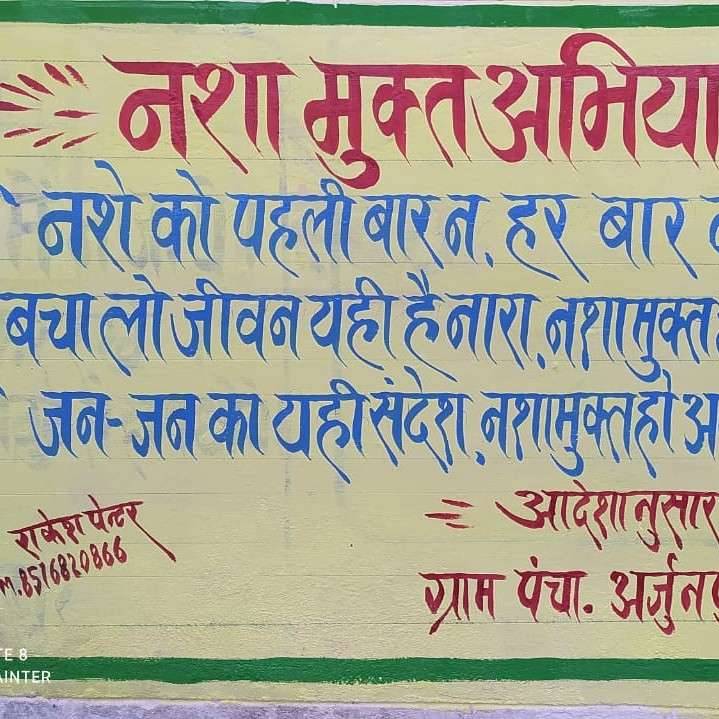 नशा मुक्त अभिया
नशे को पहली बार न, हर बार
बचा लो जीवन यही है नारा, नशा मुक्त
जन-जन का यही संदेश, नशा मुक्त हो अ
= आदेशानुसार
राकेश पेन्टर
M.8516820866
ग्राम पंचा. अर्जुन
TE 8
AINTER